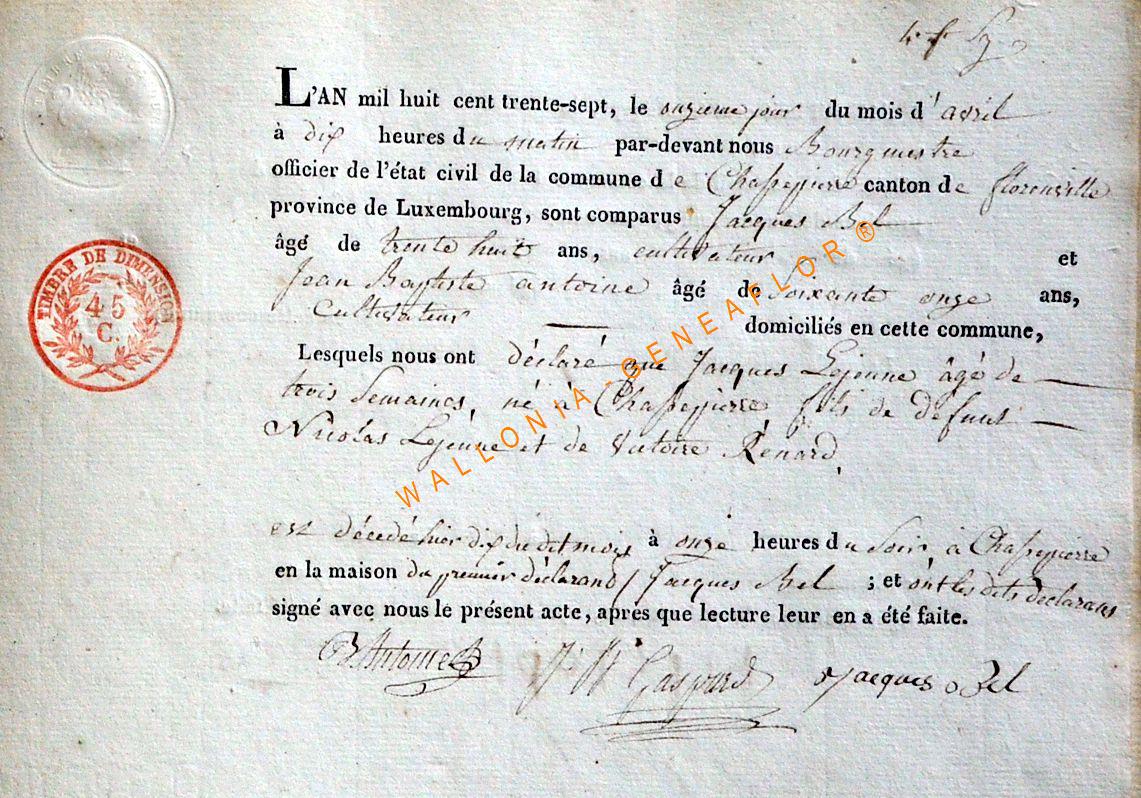 L'AN mil huit cent trente-sept, le onzieme jour du mois d'avril
à dix heures du matin par-devant nous Bourgmestre
officier de l'état civil de la commune de Chassepierre canton de florenville
province de Luxembourg, sont comparus Jacques Bel
âgé de trente huit ans, cultivateur et
Jean Baptiste antoine âgé de Soixante onze ans,
Cultivateur domiciliés en cette commune,
Lesquels nous ont déclaré que Jacques Lejeune âgé de
trois Semaines, né à Chassepierre fils de défunt
Nicolas Lejeune et de Victoire Renard,
est décédé hier dix du dit mois à onze heures du Soir, à Chassepierre
en la maison du premier déclarand Jacques Bel ; et ont les dits déclarans
signé avec nous le présent acte, après que lecture leur en a été faite.
B Antoine Gaspard Jacques Bel
TIMBRE DE DIMENSION
45
C.
WALLONIA-GENEAFLOR ®